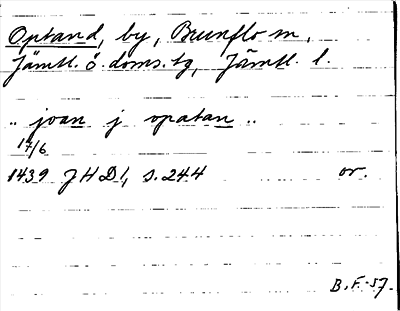 Optand, by, Brunflo sn,
Jämtl. ö. doms. tg, Jämtl. l.
.. joan j opatan ..
14/6
1439 JHD 1, s. 244 or.
B. F. -57.